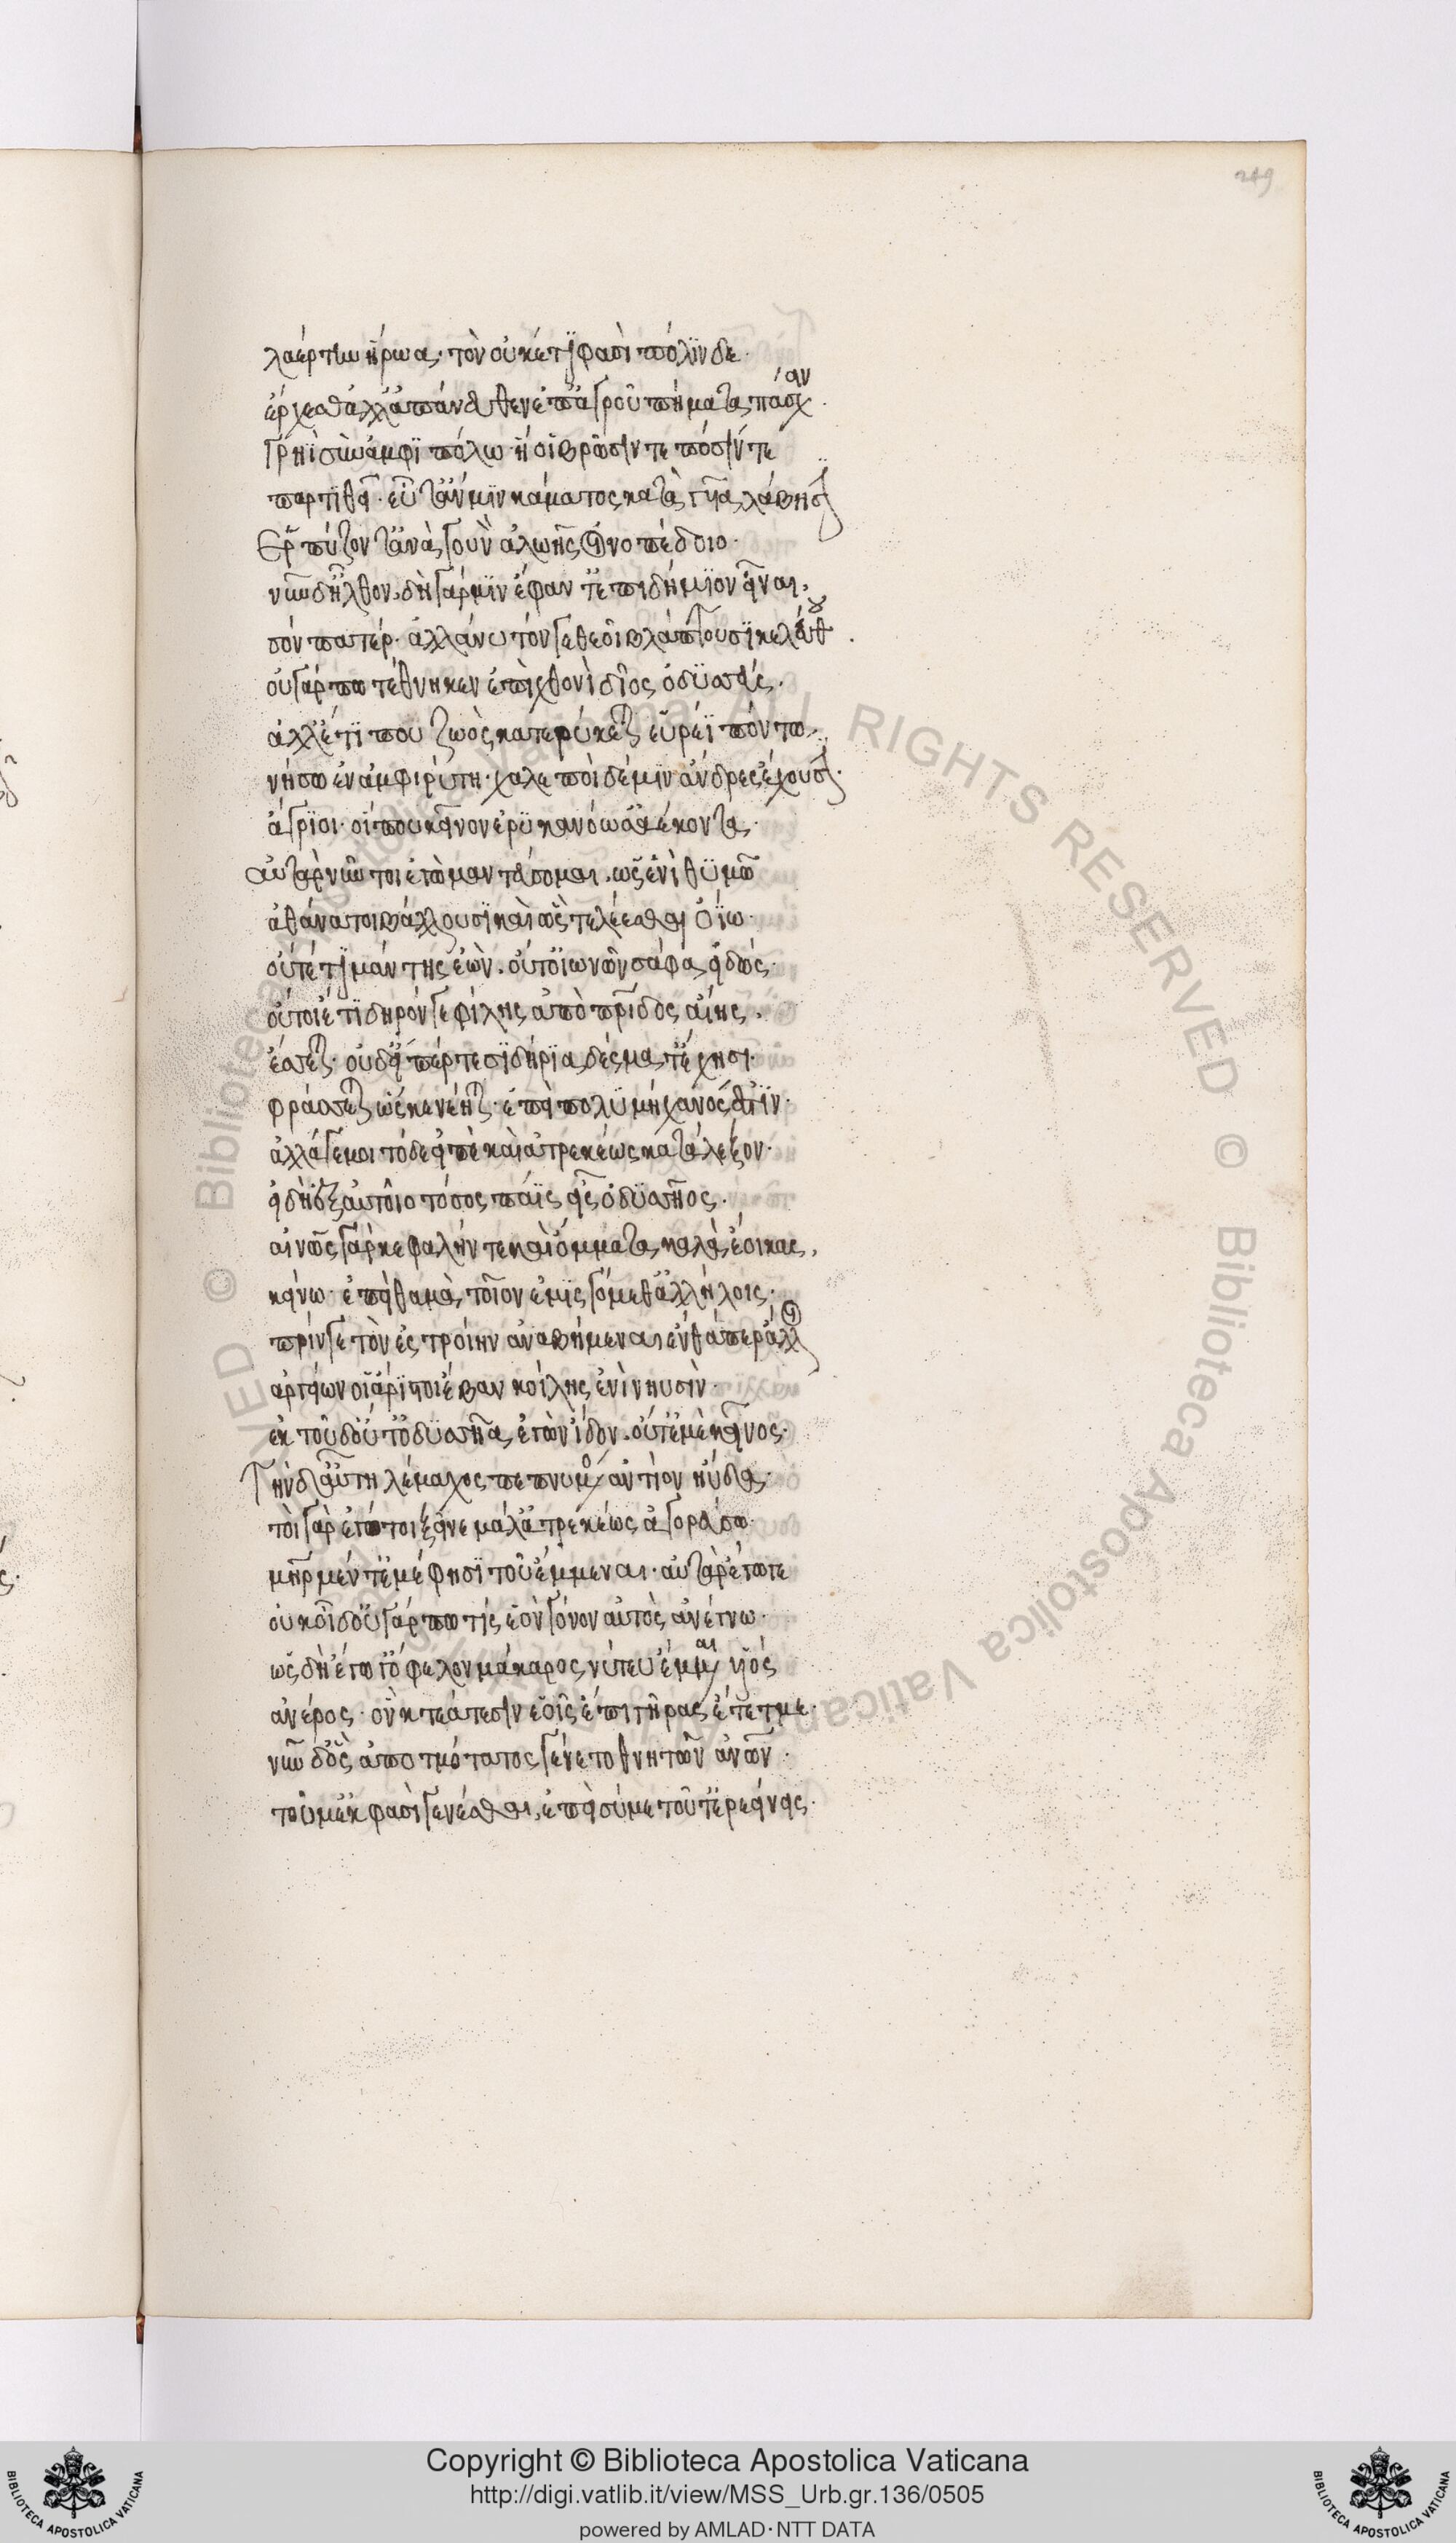 249
λαέρτην ἥρωα· τὸν οὐκέτι φασὶ πόλινδε·
ἔρχεσθ' ἀλλ' ἀπάνευθεν ἐπ' ἀγροῦ πήματα πάσχειν·
γρηῒ σὺν ἀμφιπόλω· ἥ οἱ βρῶσίν τε πόσιν τε
παρτιθεῖ· εὖτ' ἄν μιν κάματος κατὰ γυῖα λάβησι
ἑρπύζοντ' ἀνὰ γουνὸν ἀλωῆς οἰνοπέδοιο·
νῦν δ' ἦλθον, δὴ γάρ μιν ἔφαντ' ἐπιδήμιον εἶναι,
σὸν πατέρ'· ἀλλά νυ τόν γε θεοὶ βλάπτουσι κελεύθου·
οὐ γάρ πω τέθνηκεν ἐπὶ χθονὶ δῖος ὀδυσσεύς·
ἀλλ' ἔτι που ζωὸς κατερύκεται εὐρέϊ πόντω,
νήσω ἐν ἀμφιρύτη· χαλεποὶ δέ μιν ἄνδρες ἔχουσιν·
ἄγριοι· οἵ που κεῖνον ἐρυκανόωσ' ἀέκοντα·
αὐτὰρ νῦν τοι ἐγὼ μαντεύσομαι, ὡς ἐνὶ θυμῶ
ἀθάνατοι βάλλουσι καὶ ὡς τελέεσθαι ὀΐω·
οὔτέ τι μάντις ἐὼν, οὔτ' οἰωνῶν σάφα εἰδώς·
οὔτοι ἔτι δηρόν γε φίλης ἀπὸ πατρίδος αἴης,
ἔσσεται· οὐδ' εἴπέρ τε σιδήρια δέσματ' ἔχησι·
φράσσεται ὥς κε νέηται· ἐπεὶ πολυμήχανός ἐστιν·
ἀλλ' ἄγε μοι τόδε εἰπὲ καὶ ἀτρεκέως κατάλεξον·
εἰ δὴ ἐξ αὐτοῖο τόσος πάϊς εἶς ὀδυσσῆος·
αἰνῶς γὰρ κεφαλήν τε καὶ ὄμματα καλὰ ἔοικας,
κείνω· ἐπεὶ θαμὰ τοῖον ἐμισγόμεθ' ἀλλήλοις·
πρίν γε τὸν ἐς τροίην ἀναβήμεναι ἔνθά περ ἄλλοι
ἀργείων οἱ ἄριστοι ἔβαν κοίλης ἐνὶ νηυσίν·
ἐκ τοῦ δ' οὔτ' ὀδυσσῆα ἐγὼν ἴδον, οὔτ' ἐμὲ κεῖνος·
Τὴν δ' αὖ τηλέμαχος πεπνυμένος ἀντίον ηὔδα·
τοὶ γὰρ ἐγώ τοι ξεῖνε μάλ' ἀτρεκέως ἀγορεύσω·
μήτηρ μέν τ' ἐμέ φησι τοῦ ἔμμεναι· αὐτὰρ ἔγωγε
οὐκ οἶδ' οὐ γάρ πω τίς ἑὸν γόνον αὐτὸς ἀνέγνω·
ὡς δὴ ἔγωγ' ὄφελον μάκαρός νύ τευ ἔμμεναι υἱός
ἀνέρος· ὃν κτεάτεσσιν ἑοῖς ἔπι γῆρας ἔτετμε·
νῦν δ' ὃς ἀποτμότατος γένετο θνητῶν ἀνθρώπων·
τοῦ μ' ἔκ φασι γενέσθαι, ἐπεὶ σύ με τοῦτ' ἐρεείνεις·
Copyright © Biblioteca Apostolica Vaticana
http://digi.vatlib.it/view/MSS_Urb.gr.136/0505
powered by AMLAD·NTT DATA